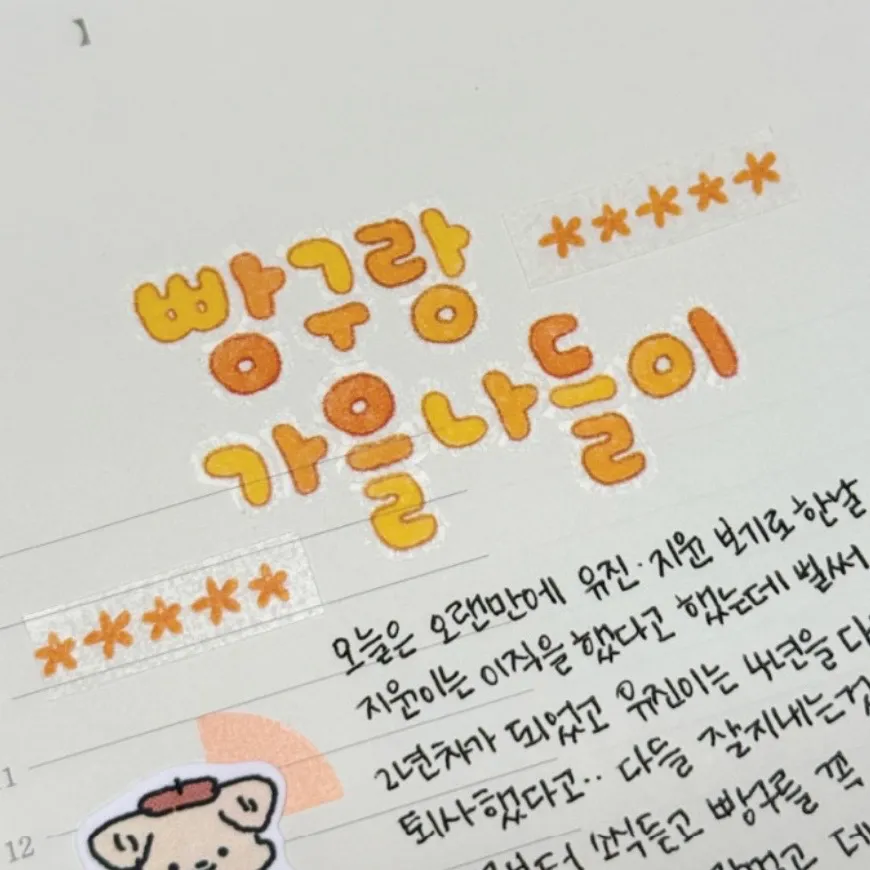 】
*****
빵구랑
가을나들이
*****
오늘은 오랜만에 유진·지윤 보기로한날
지윤이는 이직을 했다고 했는데 벌써
2년차가 되었고 유진이는 4년을 다
퇴사했다고.. 다들 잘지내는것
소식듣고 빵구를 꼭
11
12